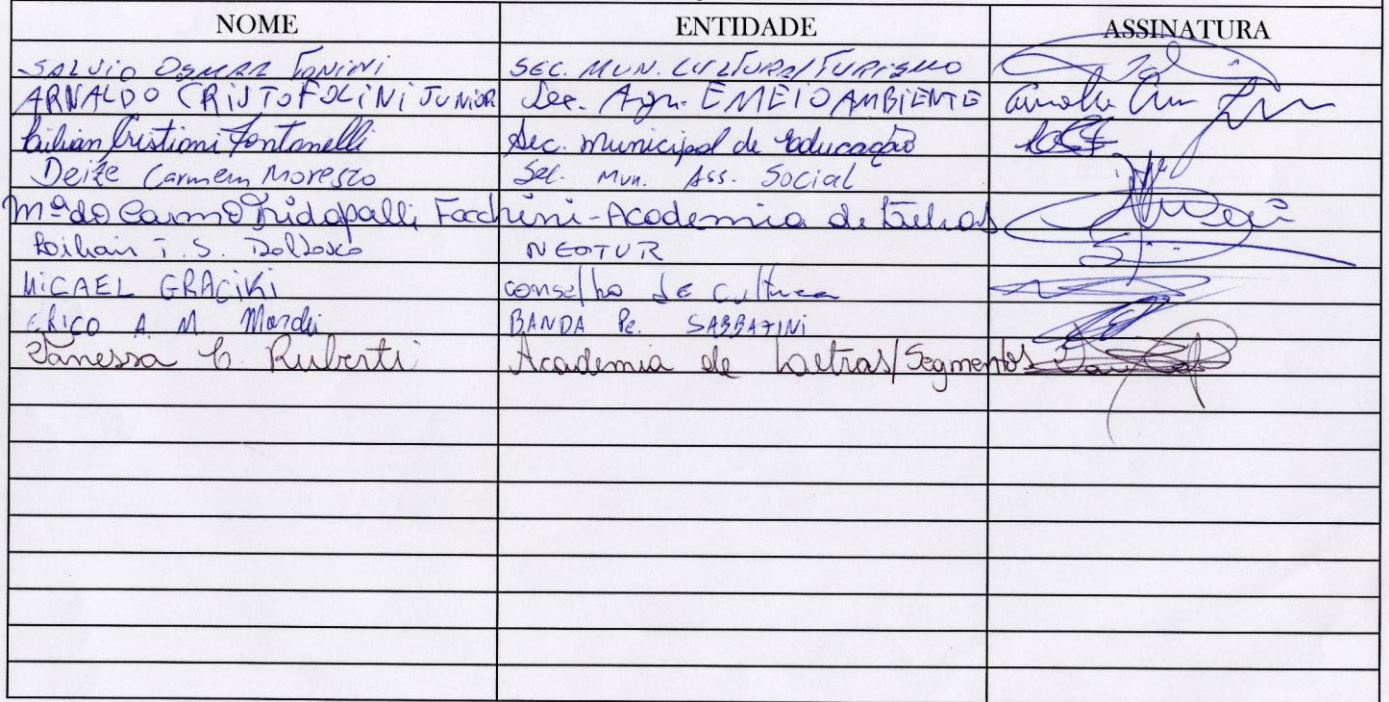 NOME ENTIDADE ASSINATURA
SALVIO OSMAR TONINI SEC. MUN. CULTURA/TURISMO
ARNALDO CRISTOFOLINI JUNIOR Sec. Agr. E MEIO AMBIENTE
Lilian Cristiani Fontanelli Sec. Municipal de Educação
Deize Carmem Moresco Sec. Mun. Ass. Social
Mª do Carmo Tridapalli Fachini - Academia de Letras
T. S. NEOTUR
MICAEL GRACIKI conselho de Cultura
ERICO A. M. BANDA Pe. SABBATINI
Vanessa C. Ruberti Academia de Letras/Segmentos